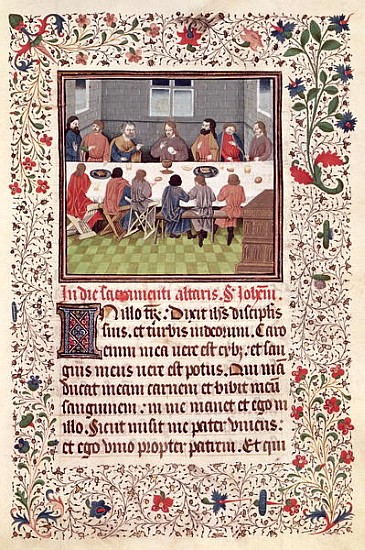 In die sacramenti altaris. S. Johem.
In illo tpr. Dixit ihs discipulis
suis, et turbis iudeorum. Caro
enim mea vere est cybz. et san
guis meus vere est potus. Qui ma
ducat meam carnem et bibit meū
sanguinem. in me manet et ego in
illo. Sicut misit me pater vivens.
et ego vivo propter patrem. Et qui